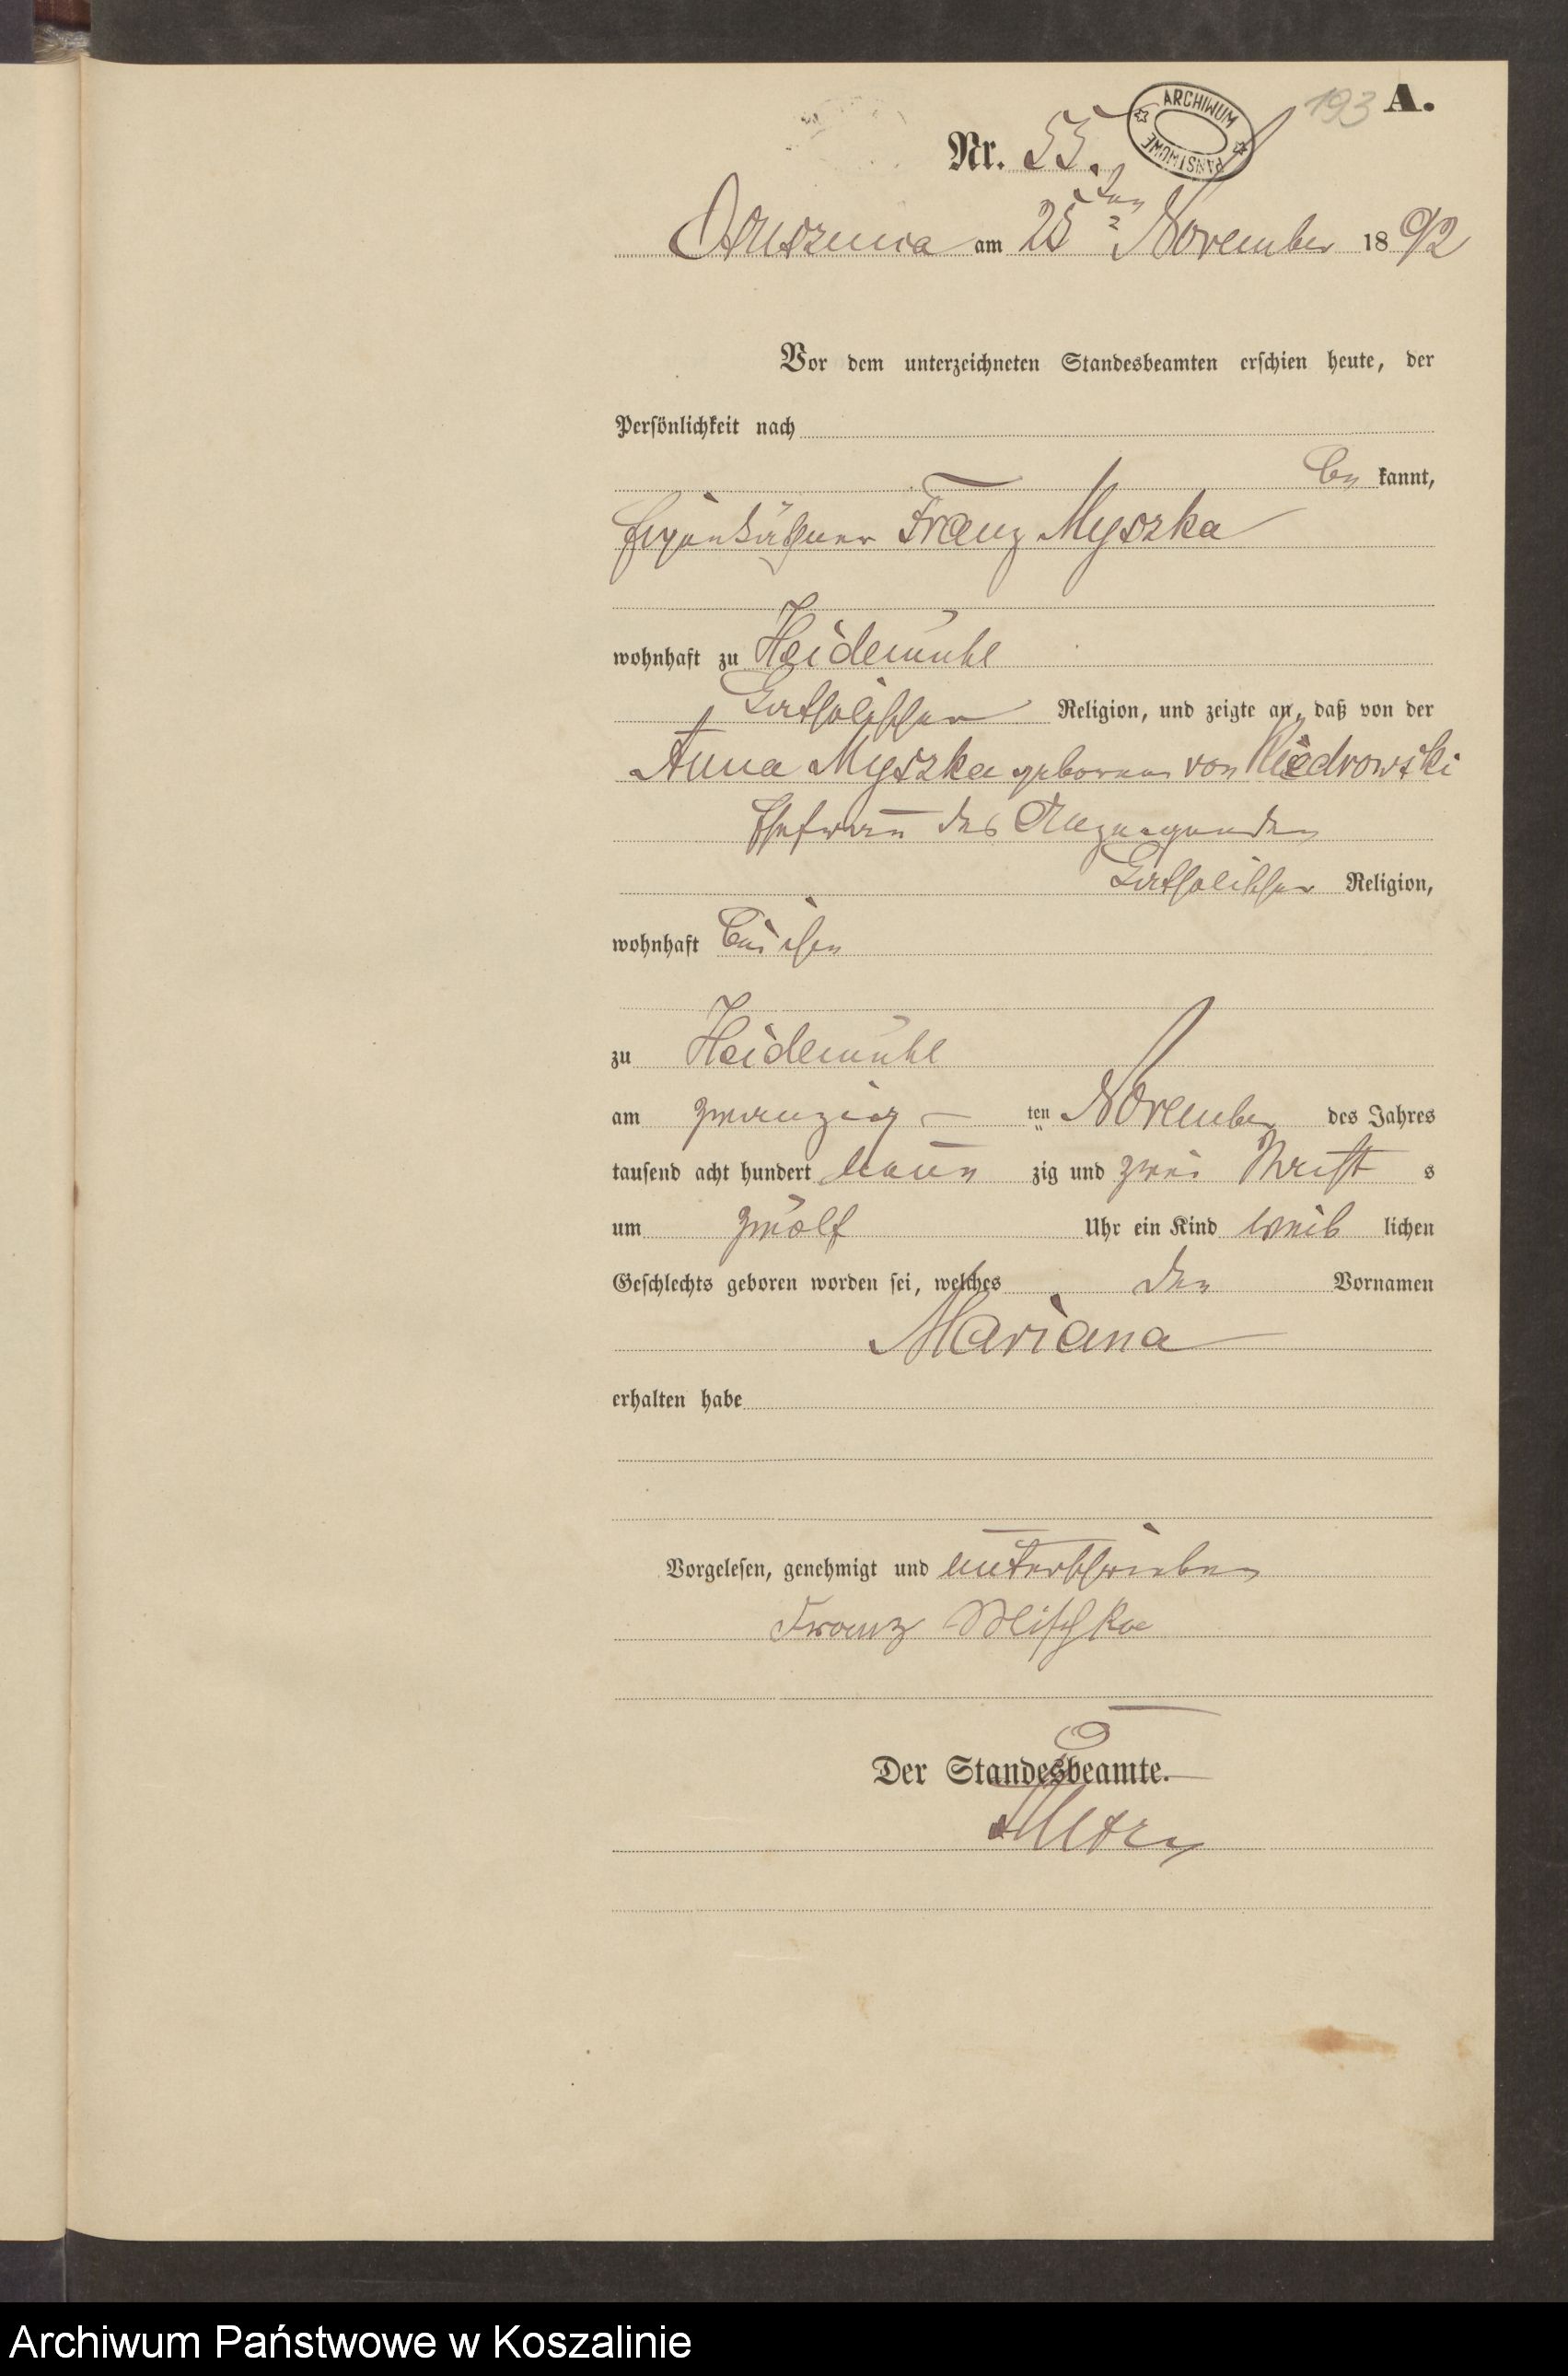 193 A.
ARCHIWUM PAŃSTWOWE
Nr. 55.
Ossuszniza am 25ten November 1892
Vor dem unterzeichneten Standesbeamten erschien heute, der
Persönlichkeit nach
be kannt,
Eigenkäthner Franz Myszka
wohnhaft zu Heidemühl
katholischer Religion, und zeigte an, daß von der
Anna Myszka geborenen von Kiedrowski
Ehefrau des Anzeigenden
katholischer Religion,
wohnhaft bei ihm
zu Heidemühl
am zwanzig ten November des Jahres
tausend acht hundert neun zig und zwei Nachts
um zwölf Uhr ein Kind weib lichen
Geschlechts geboren worden sei, welches den Vornamen
Mariana
erhalten habe
Vorgelesen, genehmigt und unterschrieben
Franz Mischka
Der Standesbeamte.
Archiwum Państwowe w Koszalinie